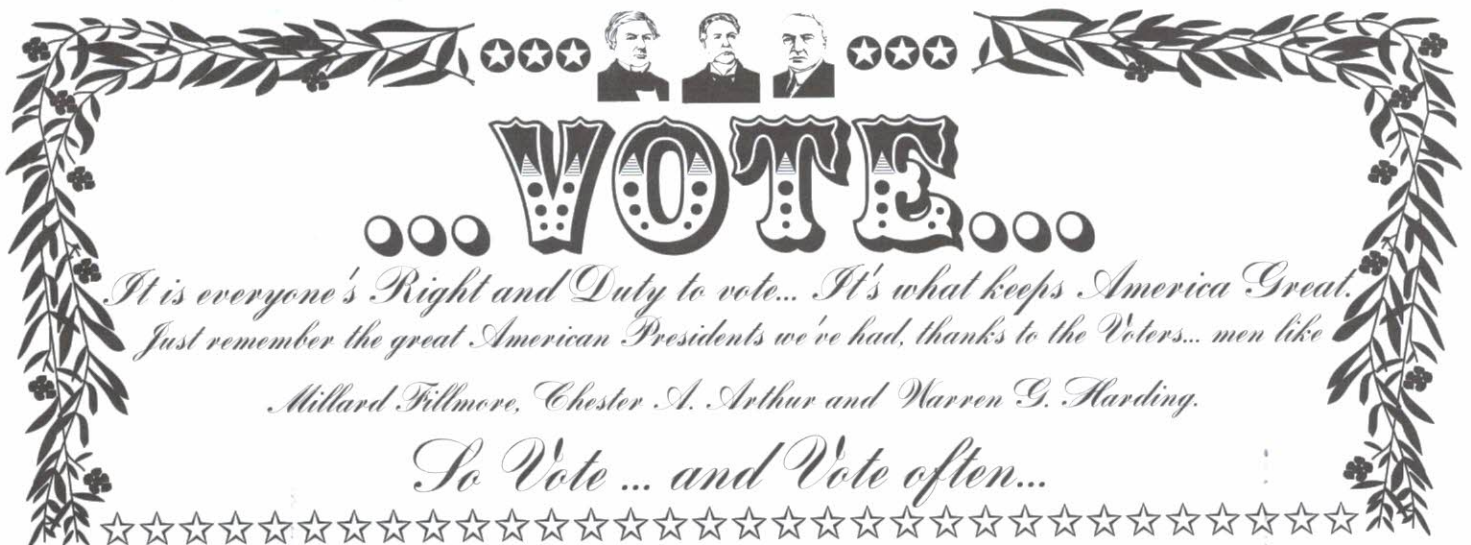 ...VOTE...
It is everyone's Right and Duty to vote... It's what keeps America Great.
Just remember the great American Presidents we've had, thanks to the Voters... men like
Millard Fillmore, Chester A. Arthur and Warren G. Harding.
So Vote ... and Vote often...